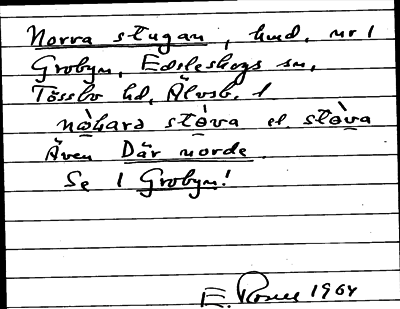 Norra stugan, hmd. nr 1
Grobyn, Edsleskogs sn,
Tössbo hd, Älvsb. l
nòhara stòva el. stòva
Även Där norde.
Se 1 Grobyn!
E. Rosell 1964